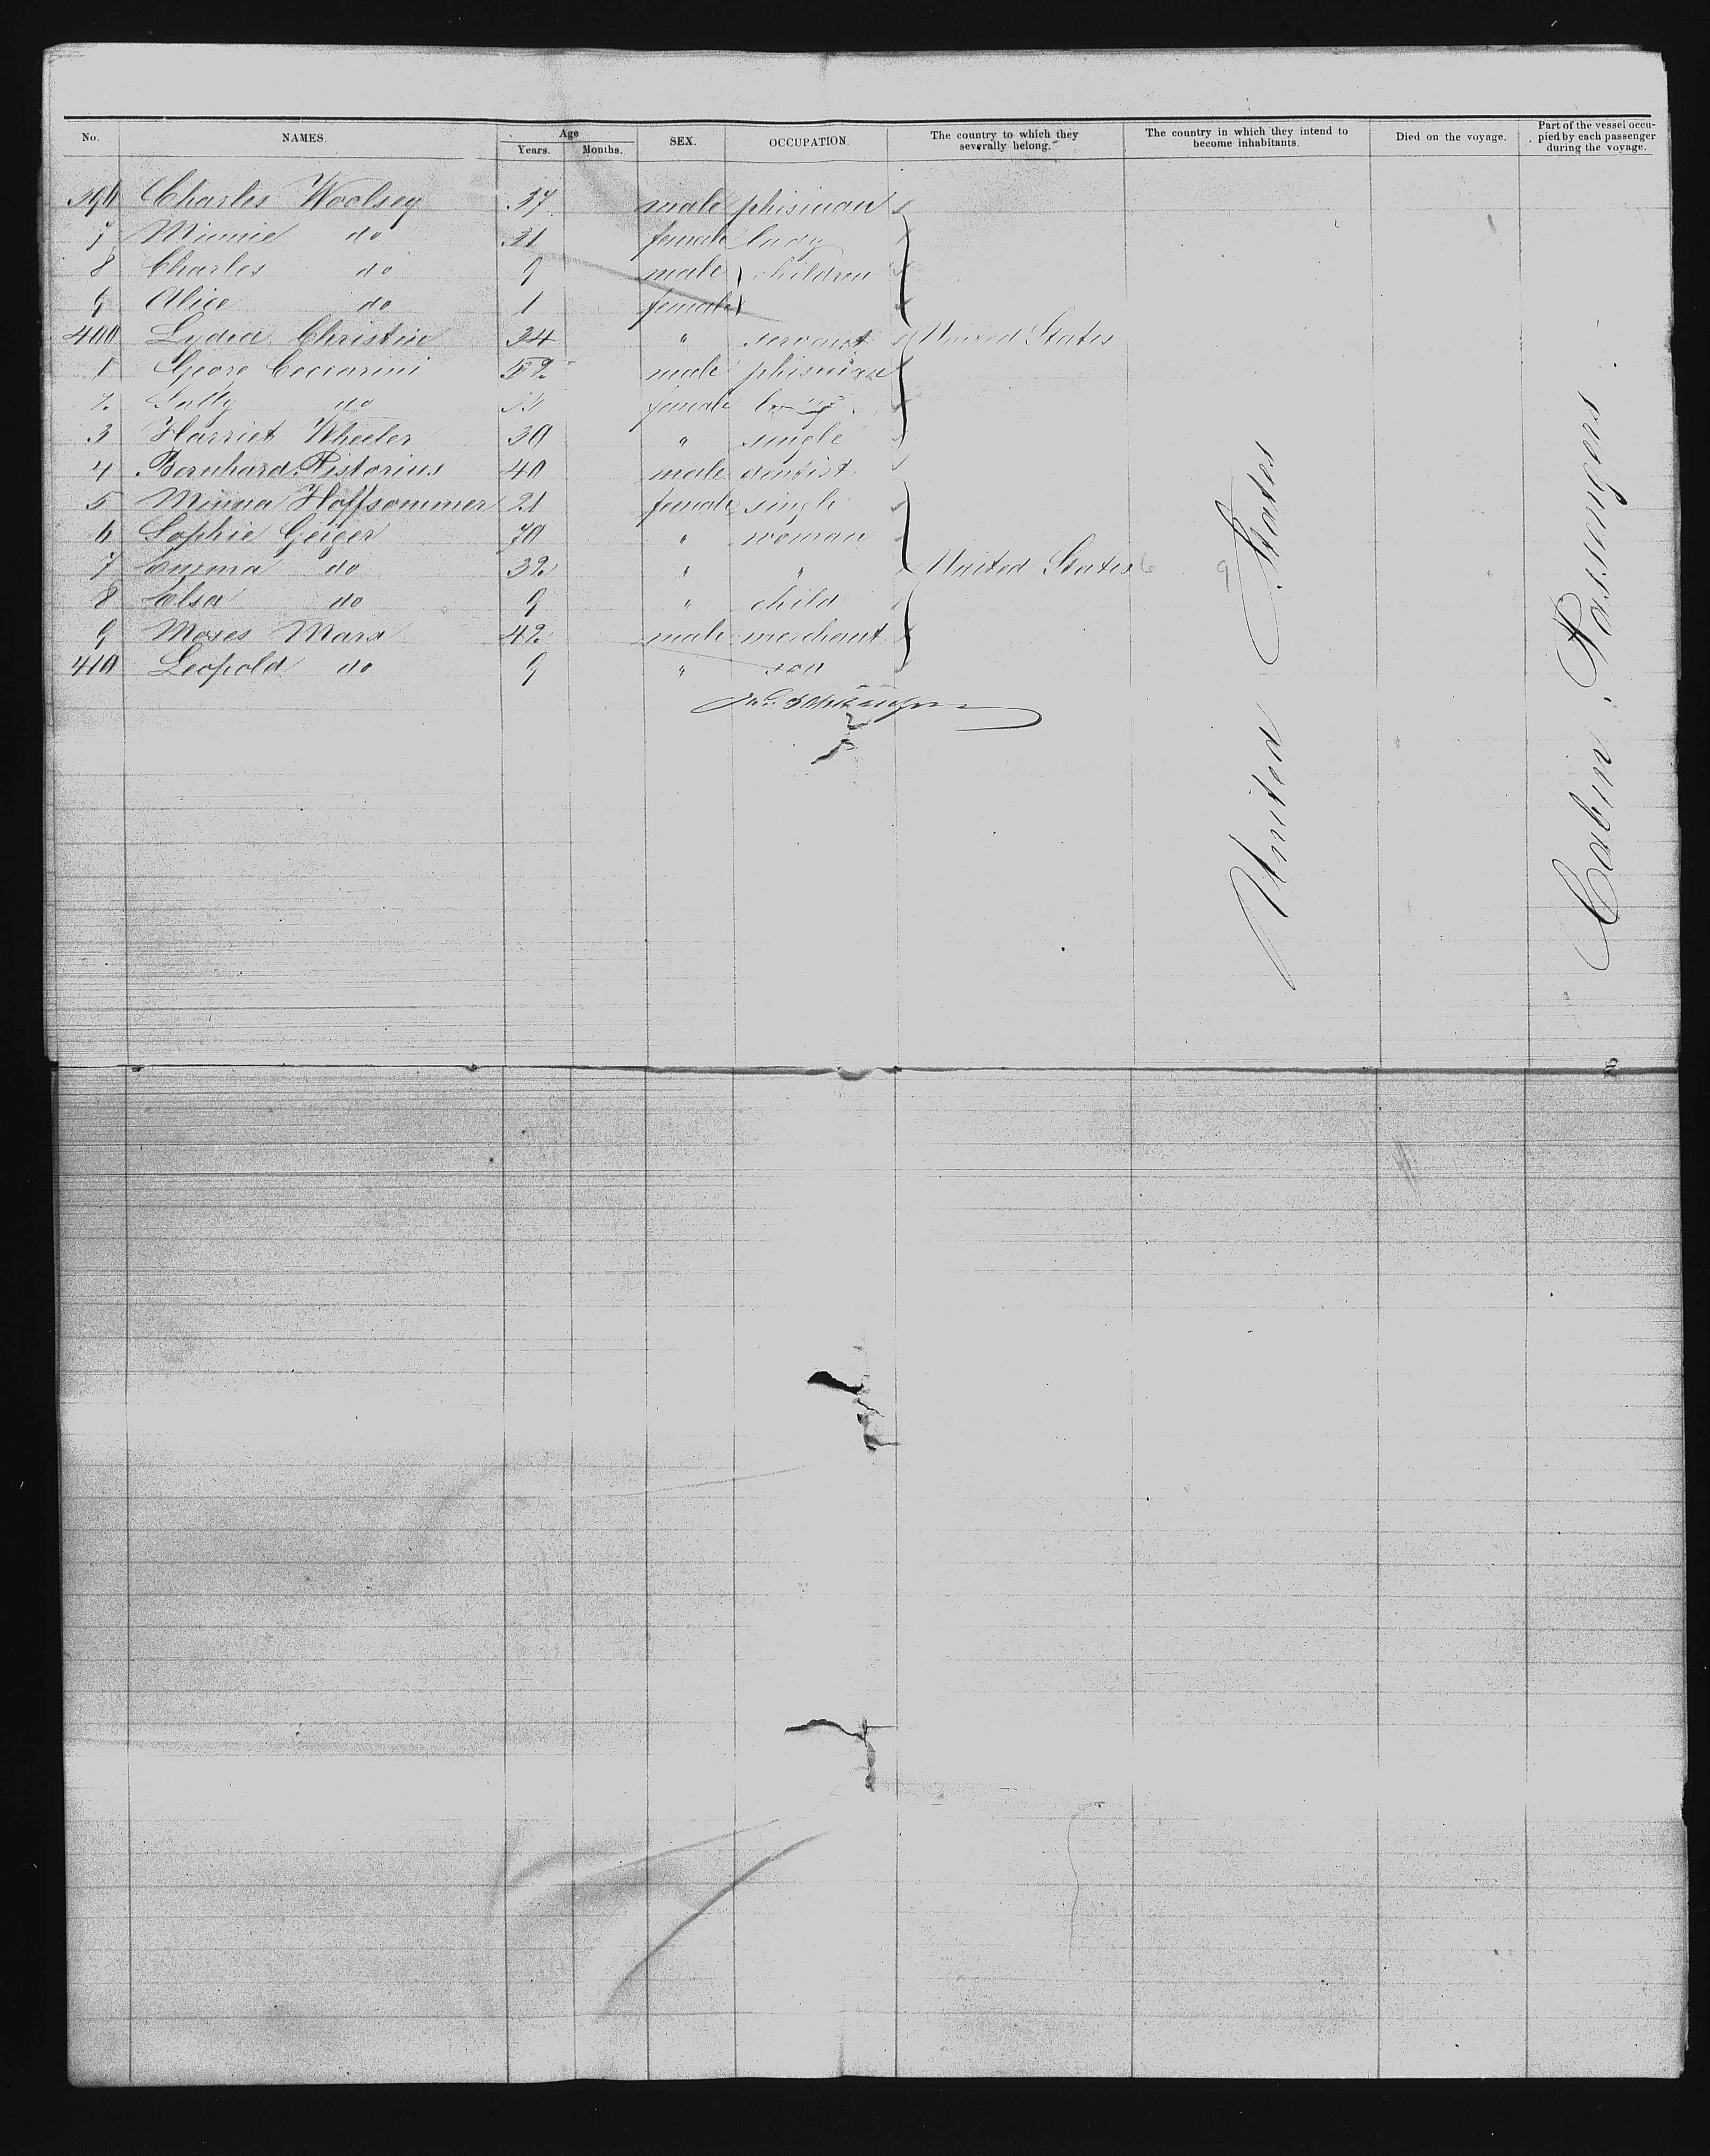 No. NAMES. Age Years. Months. SEX. OCCUPATION. The country to which they severally belong. The country in which they intend to become inhabitants. Died on the voyage. Part of the vessel occupied by each passenger during the voyage.
396 Charles Woolsey 37 male phisician
7 Minnie do 31 female lady
8 Charles do 9 male children
9 Alice do 1 female
400 Lydia Christin 34 " servant United States
1 George Ceccarini male phisician
2 do female
3 Harriet Wheeler 30 " single
4 Bernhard Pistorius 40 male dentist
5 Minna Hoffsommer 21 female single
6 Sophie Geiger 70 " woman
7 Emma do 32 " " United States 6 9
8 Elsa do 9 " child
9 Moses Marx 42 male merchant
410 Leopold do 9 " son
United States
Cabin Passengers